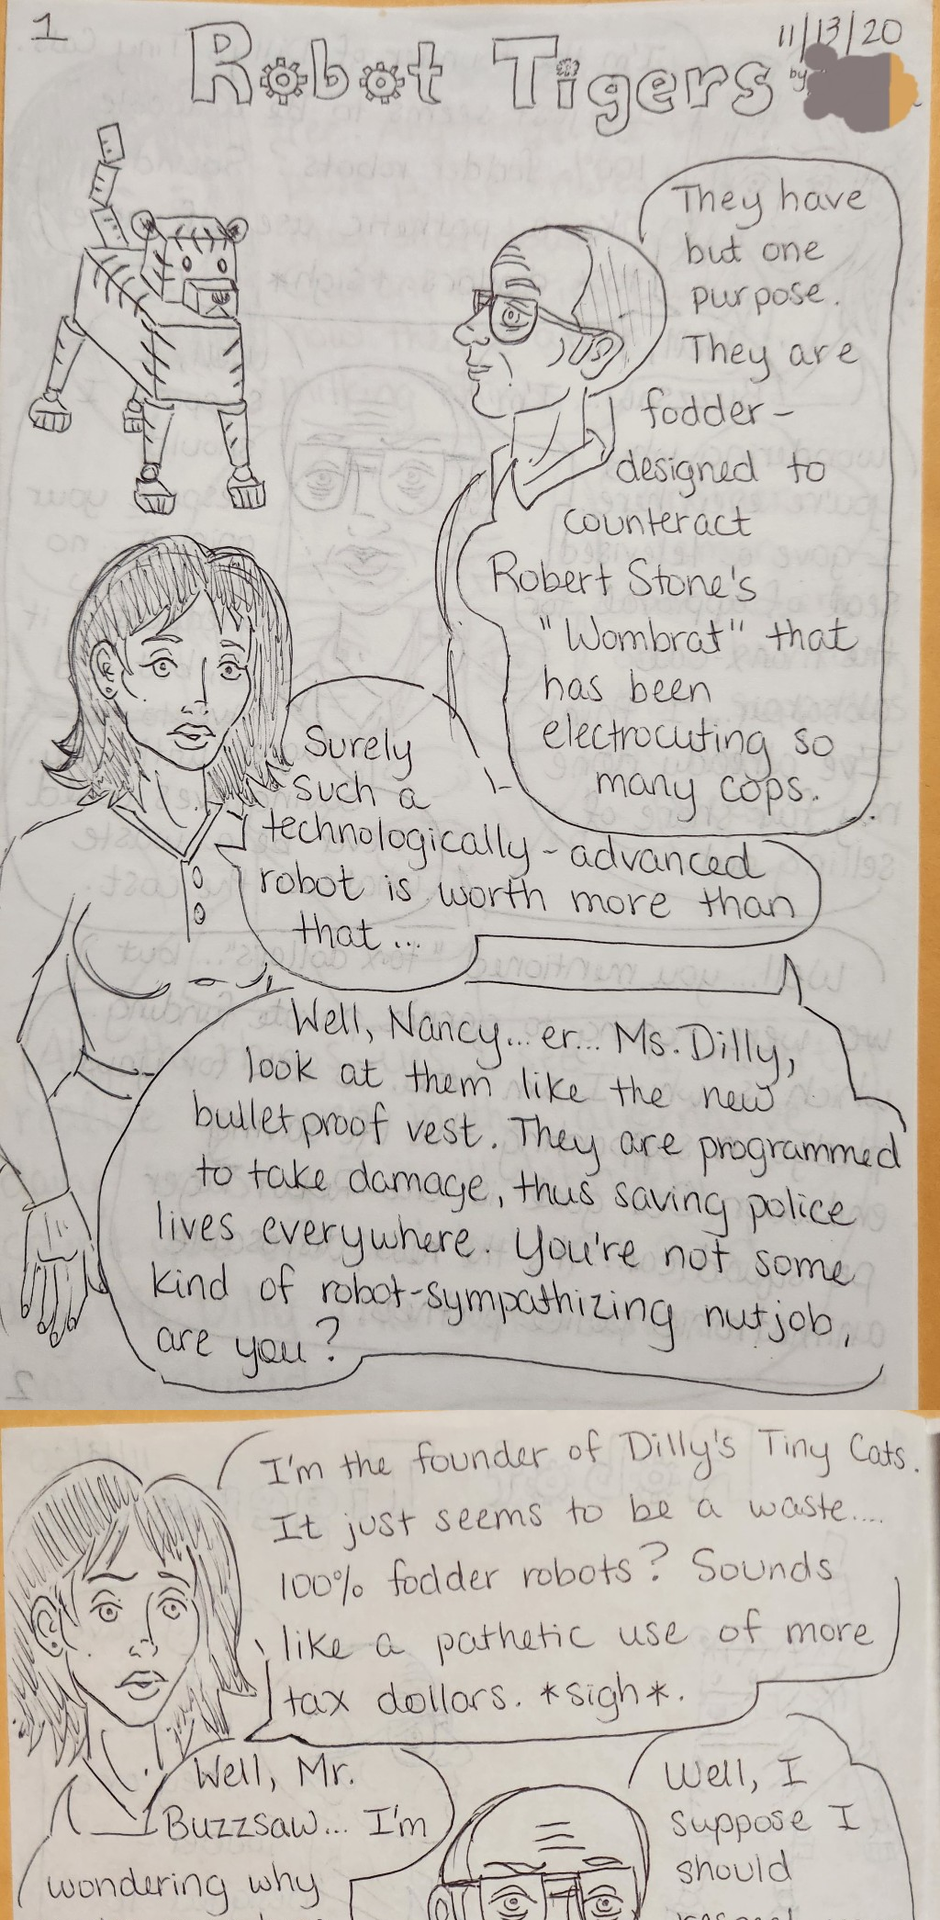 1
11/13/20
Robot Tigers
by
They have
but one
purpose.
They are
fodder-
designed to
counteract
Robert Stone's
"Wombrat" that
has been
electrocuting so
many cops.
Surely
such a
technologically-advanced
robot is worth more than
that...
Well, Nancy... er... Ms. Dilly,
look at them like the new
bulletproof vest. They are programmed
to take damage, thus saving police
lives everywhere. You're not some
kind of robot-sympathizing nutjob,
are you?
I'm the founder of Dilly's Tiny Cats.
It just seems to be a waste....
100% fodder robots? Sounds
like a pathetic use of more
tax dollars. *sigh*.
Well, Mr.
Buzzsaw... I'm
wondering why
Well, I
suppose I
should